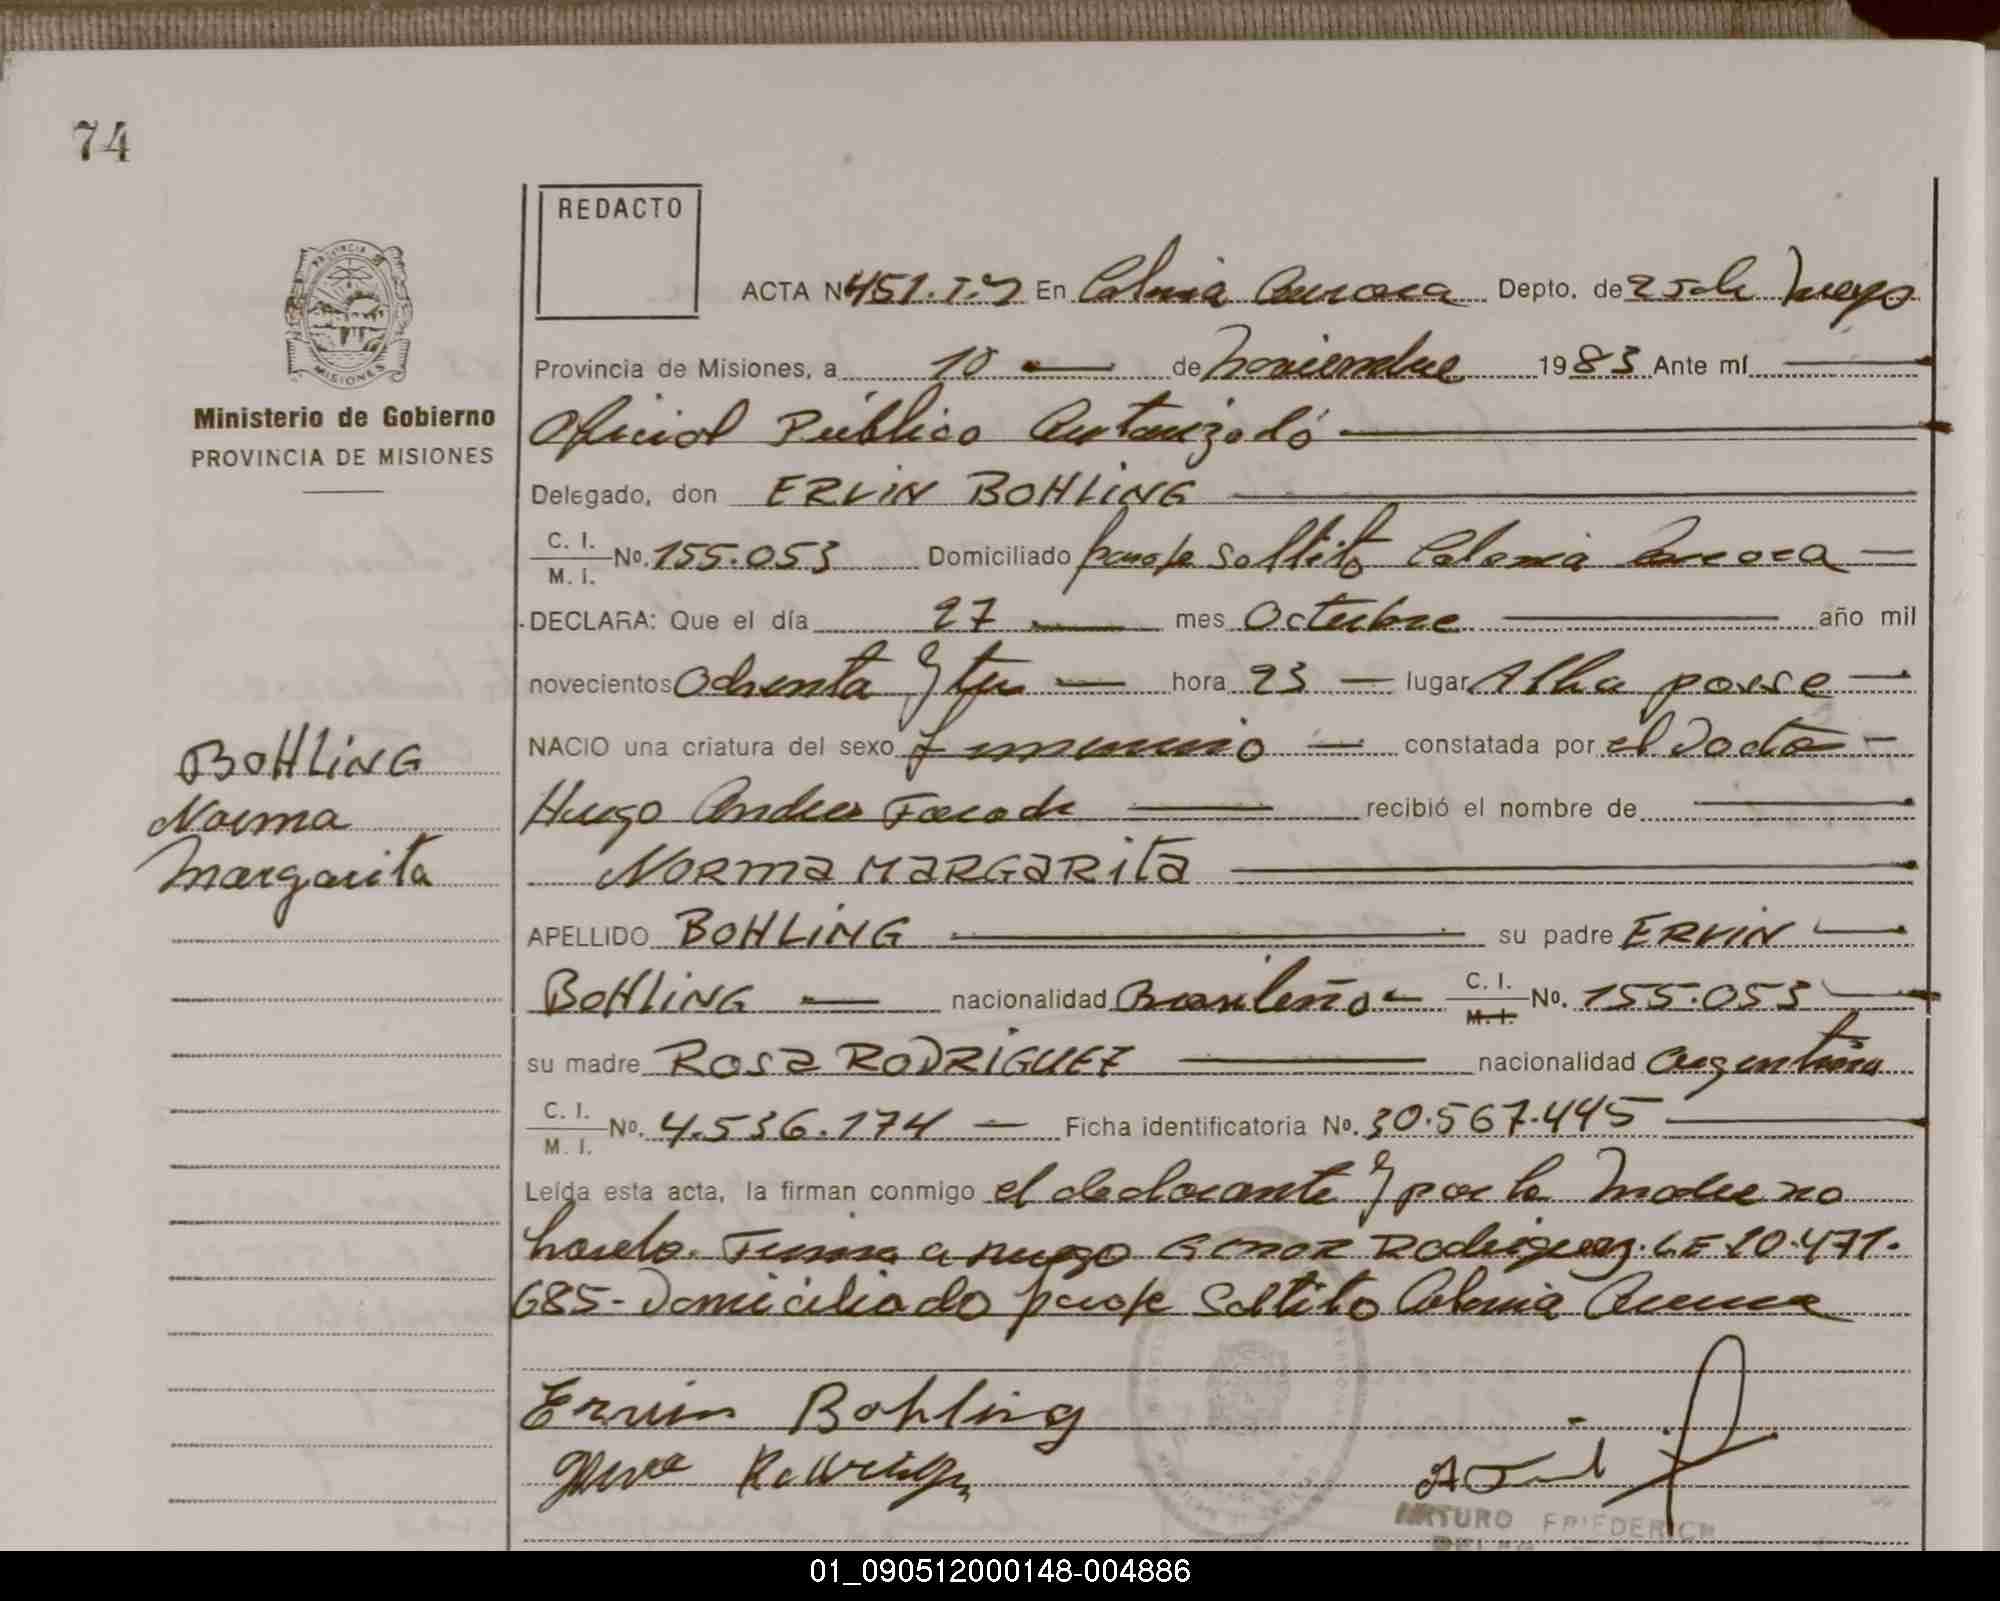 74
REDACTO
ACTA Nº 451. T.º En Colonia Aurora Depto. de 25 de Mayo
PROVINCIA DE
MISIONES
Provincia de Misiones, a 10 de Noviembre 1983 Ante mí
Ministerio de Gobierno
PROVINCIA DE MISIONES
Oficial Público Autorizado
Delegado, don ERVIN BOHLING
C. I.
M. I. No. 155.053 Domiciliado paraje Saltito Colonia Aurora
DECLARA: Que el día 27 mes Octubre año mil
novecientos Ochenta y tres hora 23 lugar Alba posse
NACIO una criatura del sexo femenino constatada por el Doctor
BOHLING
Norma
Margarita
Hugo Andres recibió el nombre de
NORMA MARGARITA
APELLIDO BOHLING su padre ERVIN
BOHLING nacionalidad Brasileño C. I.
M. I. No. 155.053
su madre ROSA RODRIGUEZ nacionalidad argentina
C. I.
M. I. No. 4.536.174 Ficha identificatoria No. 30.567.445
Leída esta acta, la firman conmigo el declarante y por la Madre no
hacerlo. Firma a ruego Rodriguez. LE 10.471.
685- Domiciliado paraje Saltito Colonia Aurora
Ervin Bohling
ARTURO FRIEDERICH
01_090512000148-004886